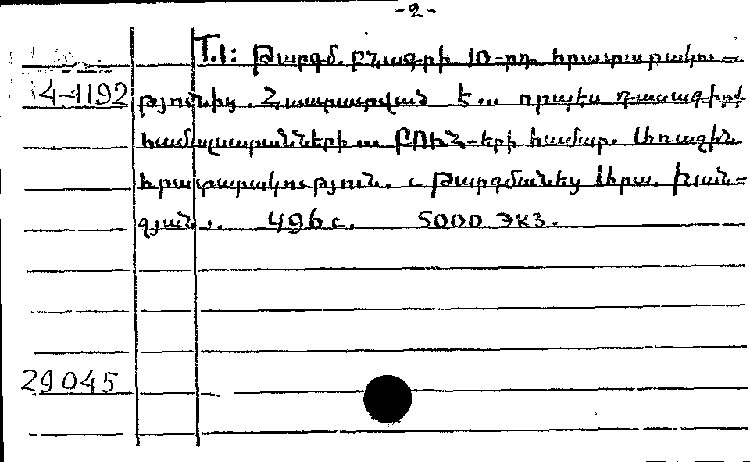 -2-
Т.1: Թարգմ. բնագրի 10-րդ հրատարակու-
4-1192 թյունից. Հաստատված է... որպես դասագիրք
համալսարանների ... ԲՈՒՀ-երի համար. Առաջին
հրատարակություն. Թարգմանեց Արա. Խան-
զյան. 496 с. 5000 экз.
29045